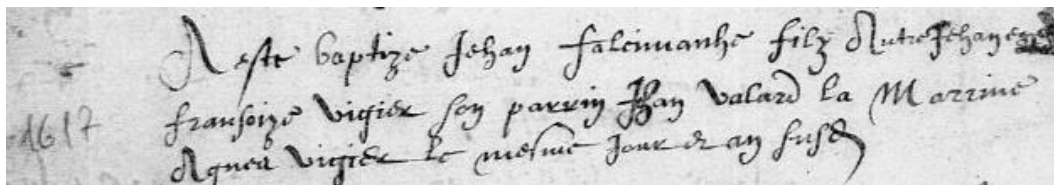 A este baptize Jehan falcimanhe filz dutre Jehan et de
1617 fransoize vigier son parrin Jhan valard la Marrine
Agnes vigier le mesme jour et an susd